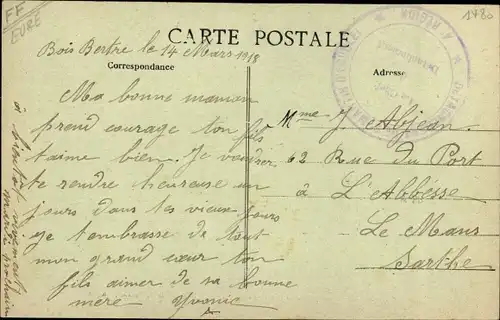 FF
EURE
1780
CARTE POSTALE
Bois Bertre le 14 Mars 1918
Correspondance
Adresse
Ma bonne maman
prend courage ton fils
t'aime bien. Je voudrer
te rendre heureuse un
jours dans tes vieux jours
ge t'embrasse de tout
mon grand cœur ton
fils aimer de sa bonne
mère Yvonic
à bientôt vivement
mardi prochain
Mme J. Abjean.
62 Rue du Port
à L'Abbesse
Le Mans
Sarthe